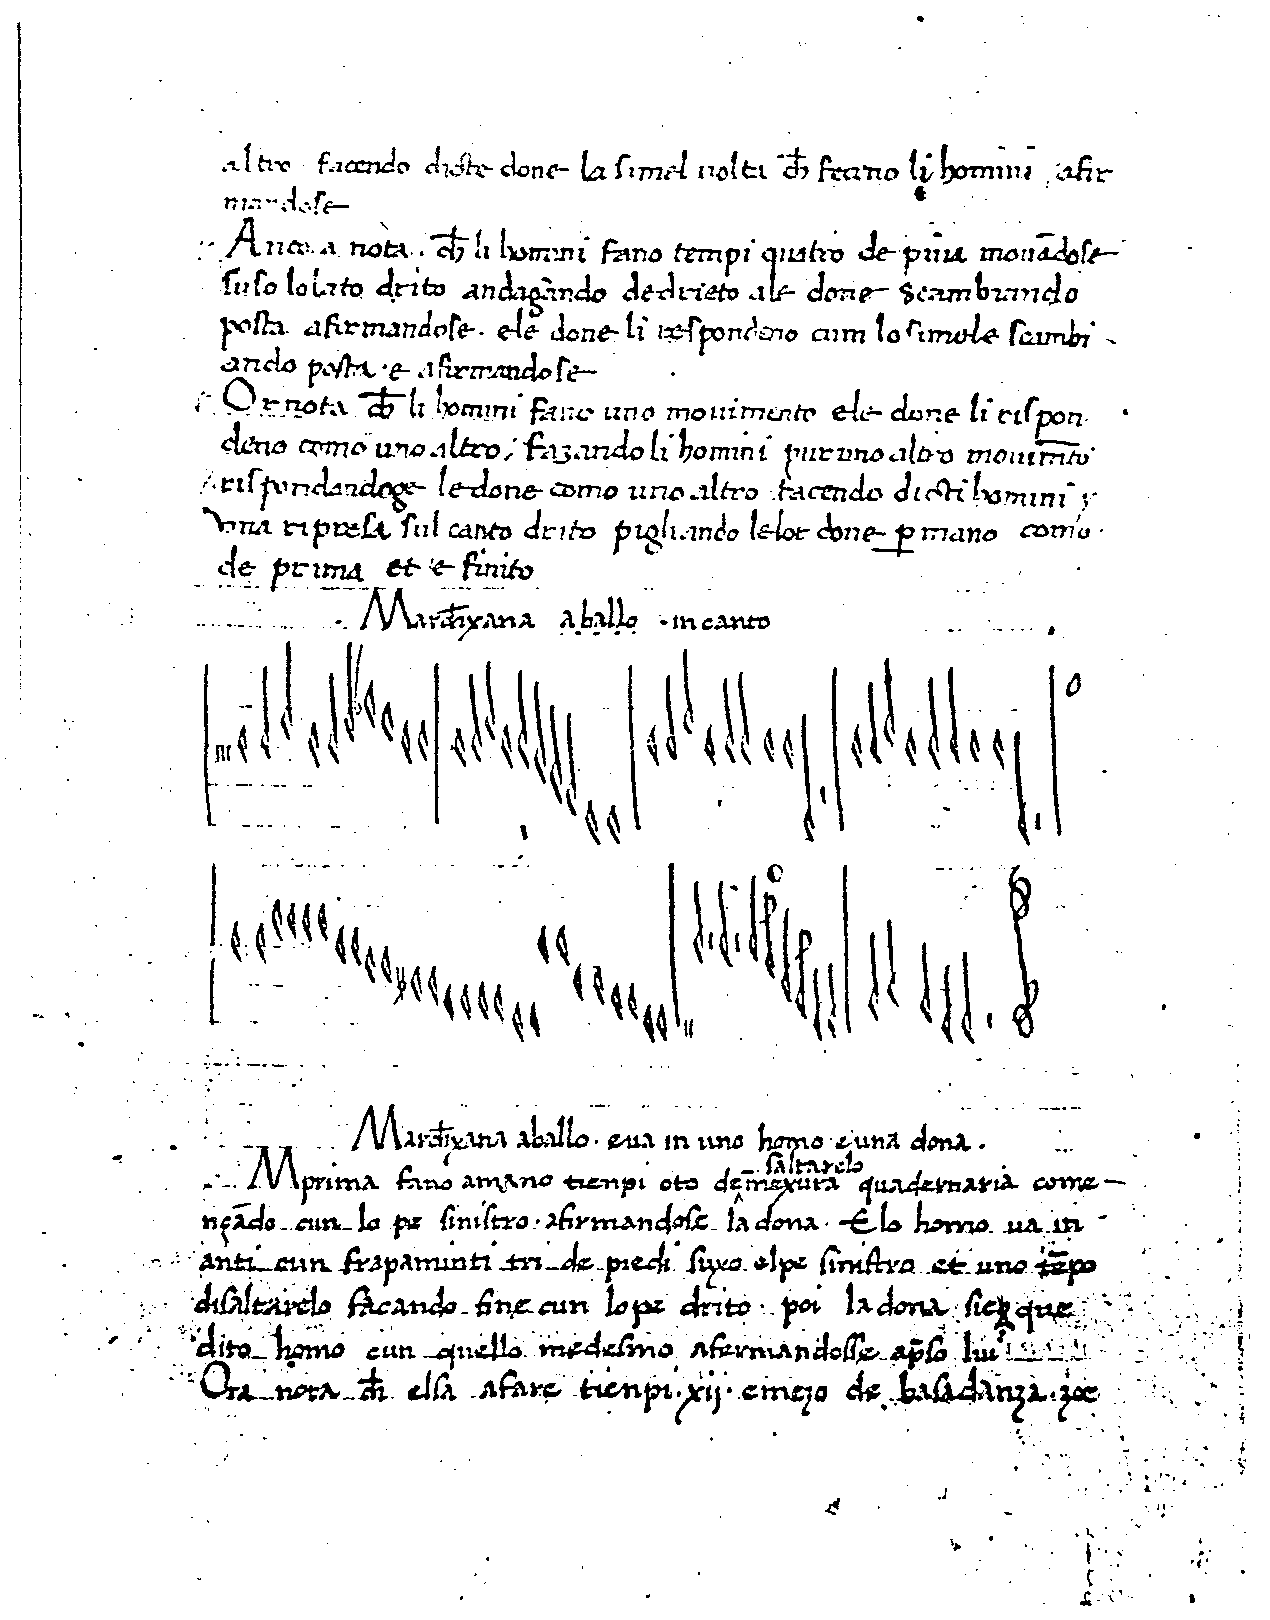 altro facendo dicte done la simel volta ch̄ feceno li homini afir
mandose
Ancora nota ch̄ li homini fano tempi quatro de p̄ma movādose
suso lo lato drito andagando dedrieto ale done scambiando
posta afirmandose ele done li respondeno cum lo simele scambi
ando posta e afirmandose
Or nota ch̄ li homini fano uno movimento ele done li rispon
deno como uno altro, fazando li homini pur uno altro movimēto
rispondandoge le done como uno altro facendo dicti homini
una ripresa sul canto drito pigliando le lor done ꝑ mano como
de prima et e finito
Marchexana a ballo in canto
Marchexana aballo. e va in uno homo e una dona.
saltarelo
Mprima fano amano tienpi oto de mexura quadernaria come
nçādo cun lo pe sinistro. afirmandose la dona. E lo homo va in
anti cun frapamunti tri de piedi suxo el pe sinistro et uno tēpo
di saltarelo facando fine cun lo pe drito. poi la dona siegue
dito homo cun quello medesmo afermandosse ap̄so lui
Ora nota ch̄ elsa afare tienpi.xij. e mezo de basadanza. zoe